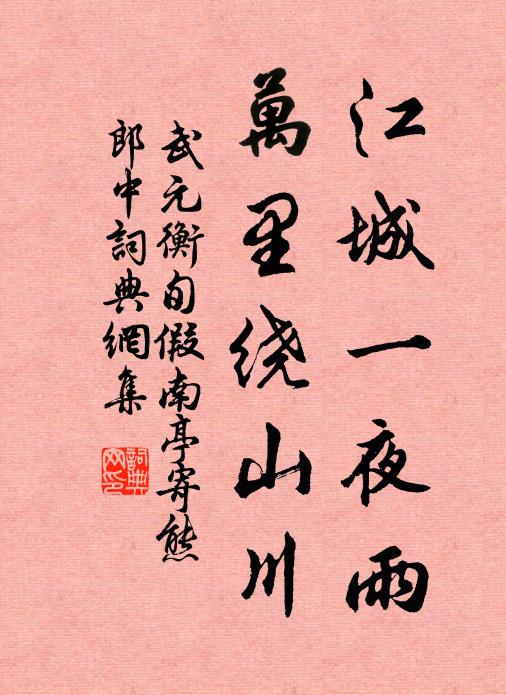 江城一夜雨
萬里绕山川
武元衡旬假南亭寄熊
郎中詞典網集
詞典网印